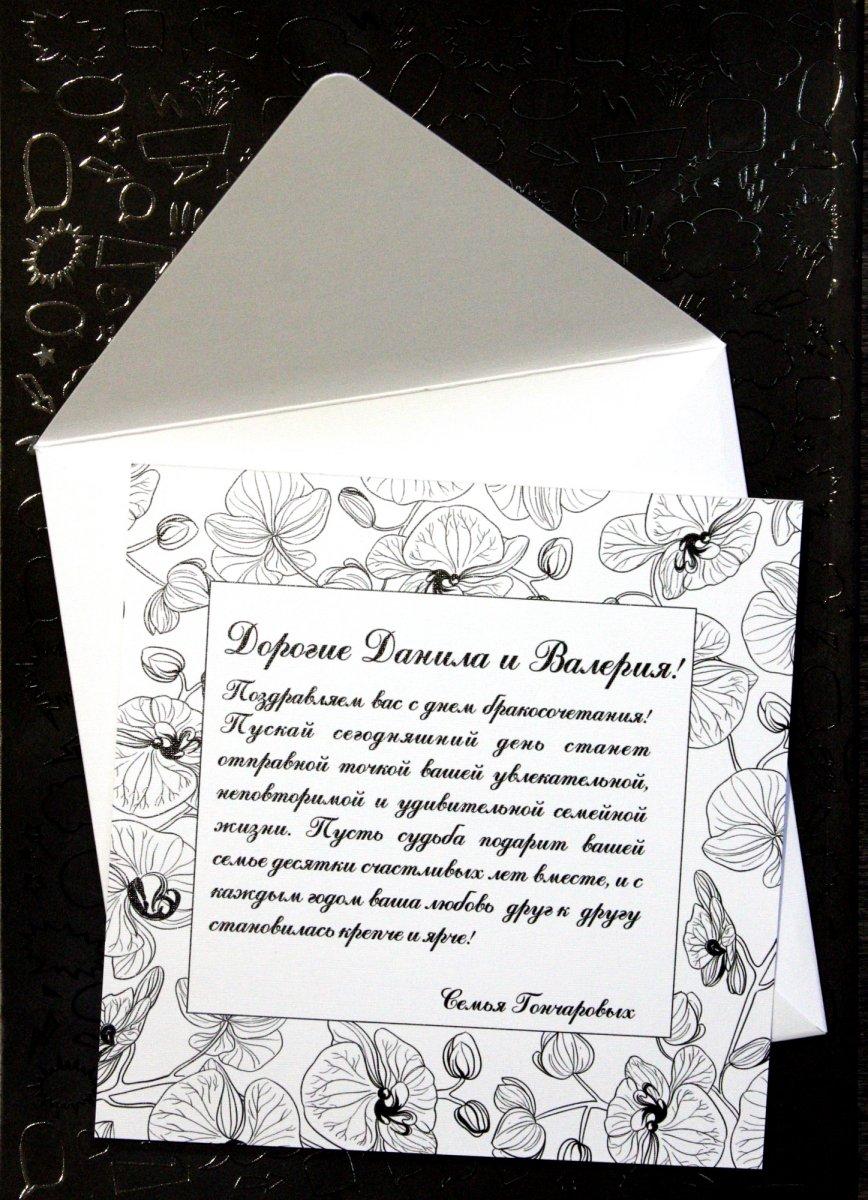 Дорогие Данила и Валерия!
Поздравляем вас с днем бракосочетания!
Пускай сегодняшний день станет
отправной точкой вашей увлекательной,
неповторимой и удивительной семейной
жизни. Пусть судьба подарит вашей
семье десятки счастливых лет вместе, и с
каждым годом ваша любовь друг к другу
становилась крепче и ярче!
Семья Гончаровых